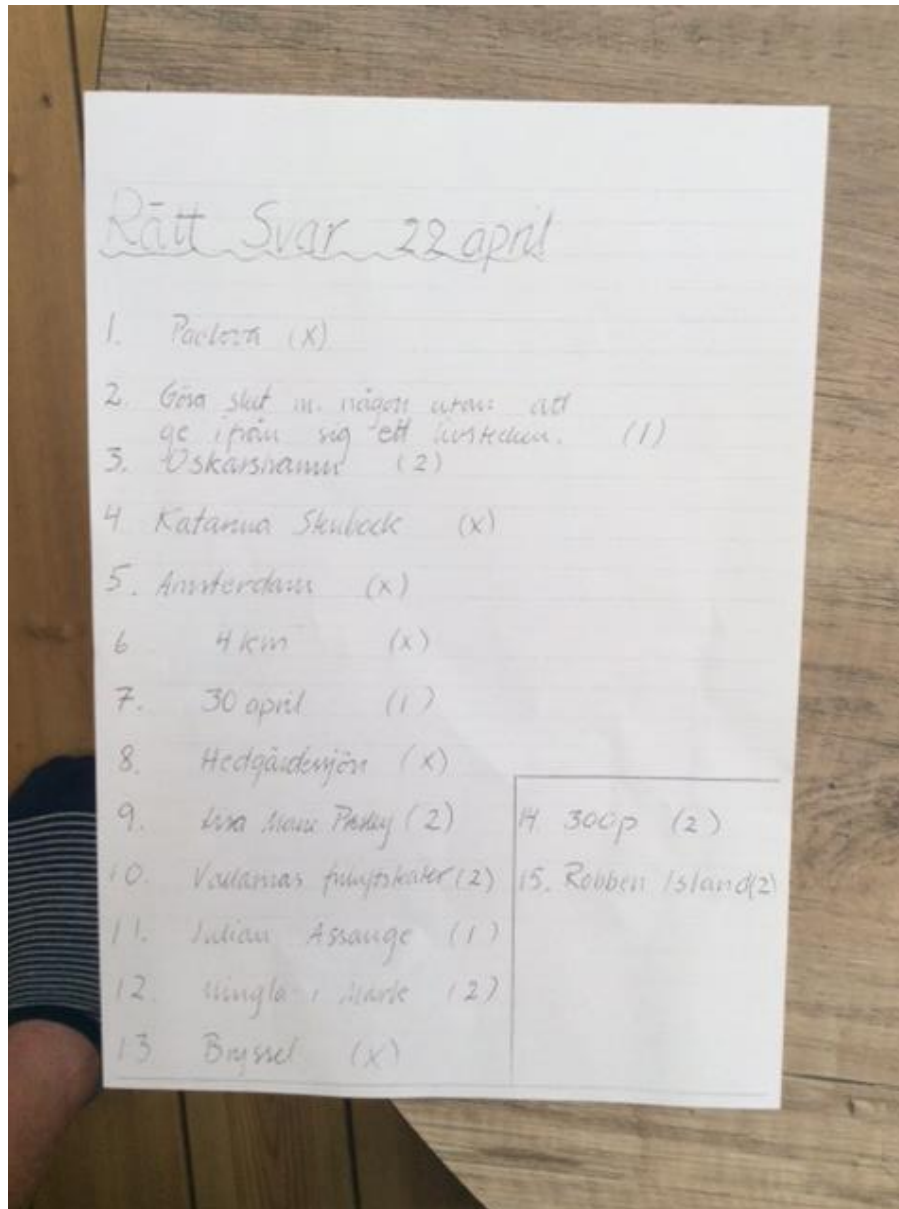 Rätt Svar 22 april
1. Pavlova (X)
2. Göra slut m. någon utan att
ge ifrån sig ett livstecken. (1)
3. Oskarshamn (2)
4 Katarina Stenbeck (X)
5. Amsterdam (X)
6 4 km (X)
7. 30 april (1)
8. Hedgärdesjön (X)
9. Lisa Marie Presley (2)
10. (2)
11. Julian Assange (1)
12. Mingla i Mark (2)
13 Bryssel (X)
14 300p (2)
15. Robben Island (2)